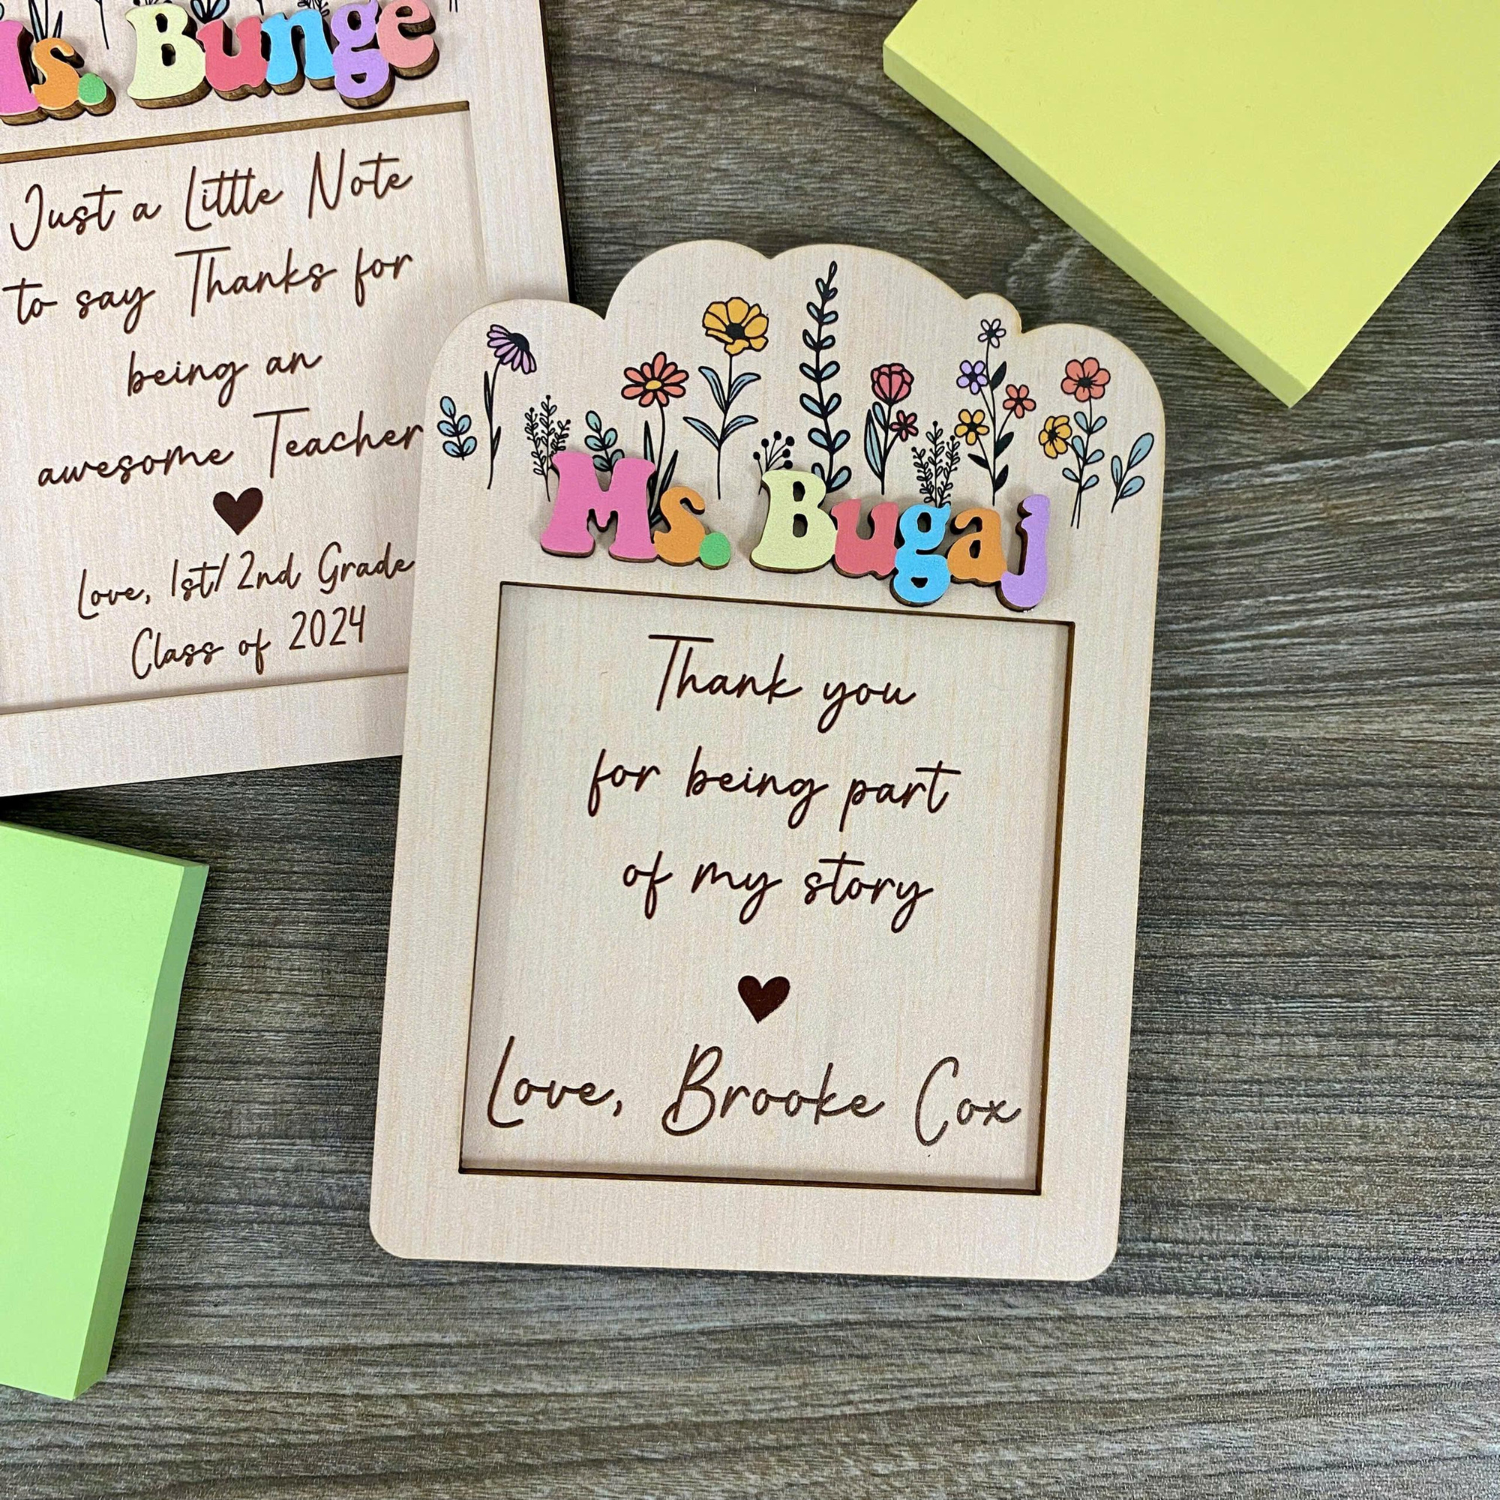 Ms. Bunge
Just a Little Note
to say Thanks for
being an
awesome Teacher
Love, 1st/2nd Grade
Class of 2024
Ms. Bugaj
Thank you
for being part
of my story
Love, Brooke Cox